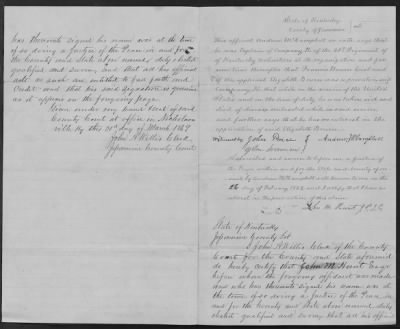 has thereunto signed his name was at the time
of so doing a Justice of the Peace in and for
the County and State above named, duly elected
qualified and sworn, and that all his official
acts as such are entitled to full faith and
Credit and that his said signature is genuine
as it appears on the foregoing page.
Given under my hand Seal of said
County Court at office in Nicholas-
ville Ky this 20th day of March 1869
John A Willis Clerk
Jessamine County Court
State of Kentucky
County of Jessamine
This affiant Andrew McCampbell on oath says that
he was Captain of Company of the Regiment of
of Kentucky Volunteers
of the applicant Elizabeth Burns was a private in said
Company, that while in the service of the United
States and in the line of duty he was taken sick and
died of disease contracted while in said service
and further says that he has no interest in the
application of said Elizabeth Burns
Witnesses John Andrew McCampbell
Subscribed and sworn to before me, a Justice of
the Peace within and for the State and County afore-
said by Andrew McCampbell
day of February 1869 and I certify that I have no
interest in the prosecution of this claim
John M Hunt J.P.J.C.
State of Kentucky
Jessamine County Sct
I John A Willis Clerk of the County
Court for the County and State aforesaid
do hereby certify that John M Hunt Esqr
before whom the foregoing affidavit was made
and who has thereunto signed his name was at
the time of so doing a Justice of the Peace in
and for the County and State above named, duly
elected qualified and sworn that all his official